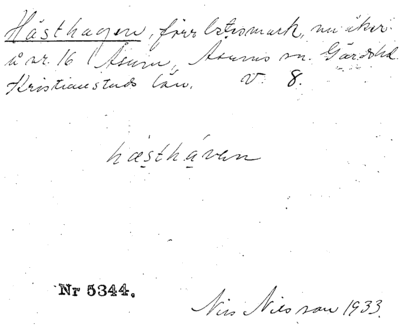 Hästhagen, förr betesmark, nu åker
å nr. 16 Åsum, Åsums sn. Gärds hd.
Kristianstads län. V. 8.
hæsthávan
Nr 5344.
Nils Nilsson 1933.